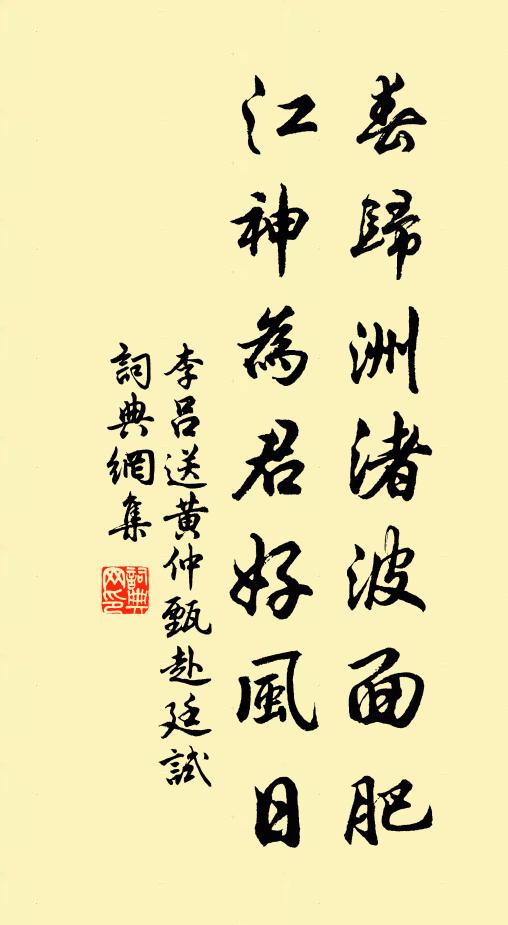 春歸洲渚波面肥
江神為君好風日
李呂送黄仲甄赴廷試
詞典網集
詞典網印